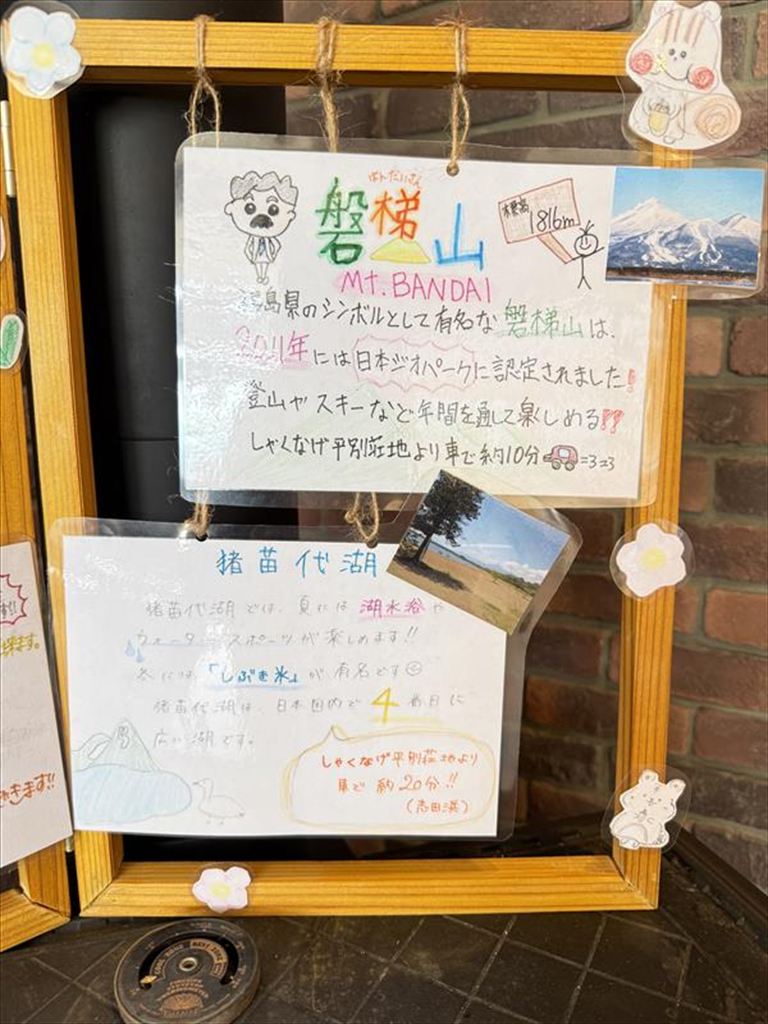 ばんだいさん
磐梯山
標高
1816m
Mt.BANDAI
福島県のシンボルとして有名な磐梯山は、
2011年には日本ジオパークに認定されました!
登山やスキーなど年間を通して楽しめる!!
しゃくなげ平別荘地より車で約10分
猪苗代湖
猪苗代湖では、夏には湖水浴や
ウォータースポーツが楽しめます!!
冬には、「しぶき氷」が有名です
猪苗代湖は、日本国内で4番目に
広い湖です。
しゃくなげ平別荘地より
車で約20分!!
(志田浜)
きます!!